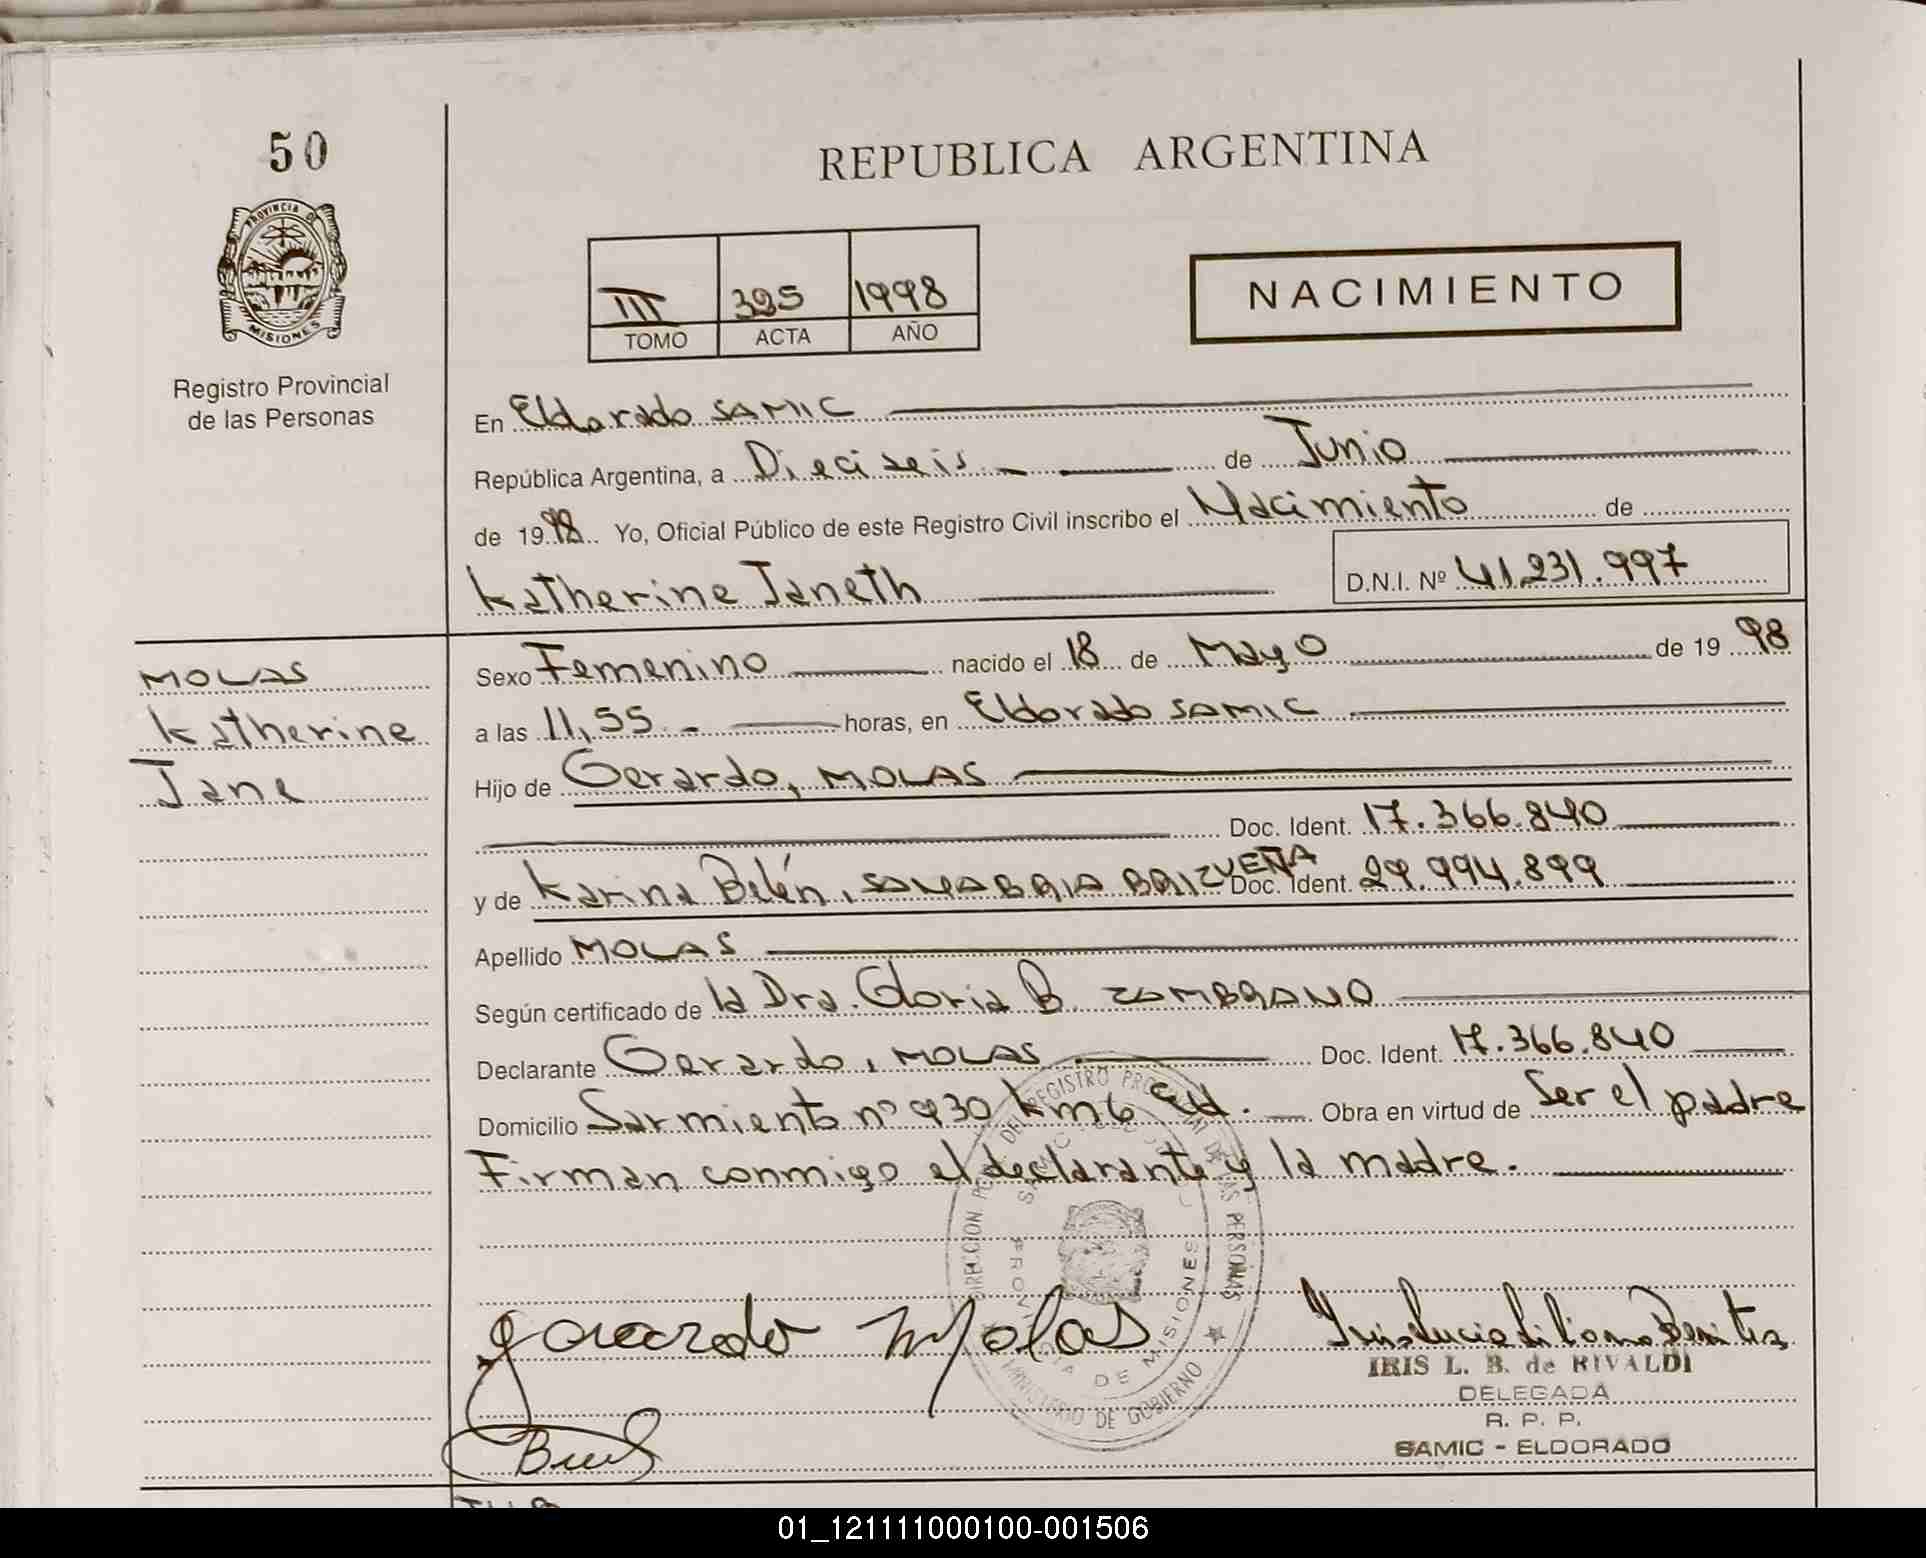 50
REPUBLICA ARGENTINA
PROVINCIA DE
MISIONES
III 395 1998
TOMO ACTA AÑO
NACIMIENTO
Registro Provincial
de las Personas
En Eldorado SAMIC
República Argentina, a Dieciseis.- de Junio
de 1998 Yo, Oficial Público de este Registro Civil inscribo el Nacimiento de
Katherine Janeth D.N.I. Nº 41.231.997
MOLAS
Katherine
Jane
Sexo Femenino nacido el 18 de Mayo de 1998
a las 11,55.- horas, en Eldorado SAMIC
Hijo de Gerardo, MOLAS
Doc. Ident. 17.366.840
y de Karina Belén, SANABRIA BRIZUEÑA Doc. Ident. 29.994.899
Apellido MOLAS
Según certificado de la Dra. Gloria B. ZAMBRANO
Declarante Gerardo, MOLAS Doc. Ident. 17.366.840
Domicilio Sarmiento nº 930 km 6 Eld. Obra en virtud de Ser el padre
Firman conmigo el declarante y la madre.
DIRECCION DEL REGISTRO PROVINCIAL DE LAS PERSONAS
PROVINCIA DE MISIONES
MINISTERIO DE GOBIERNO
gerardo Molas
IRIS L. B. de RIVALDI
DELEGADA
R. P. P.
SAMIC - ELDORADO
01_121111000100-001506